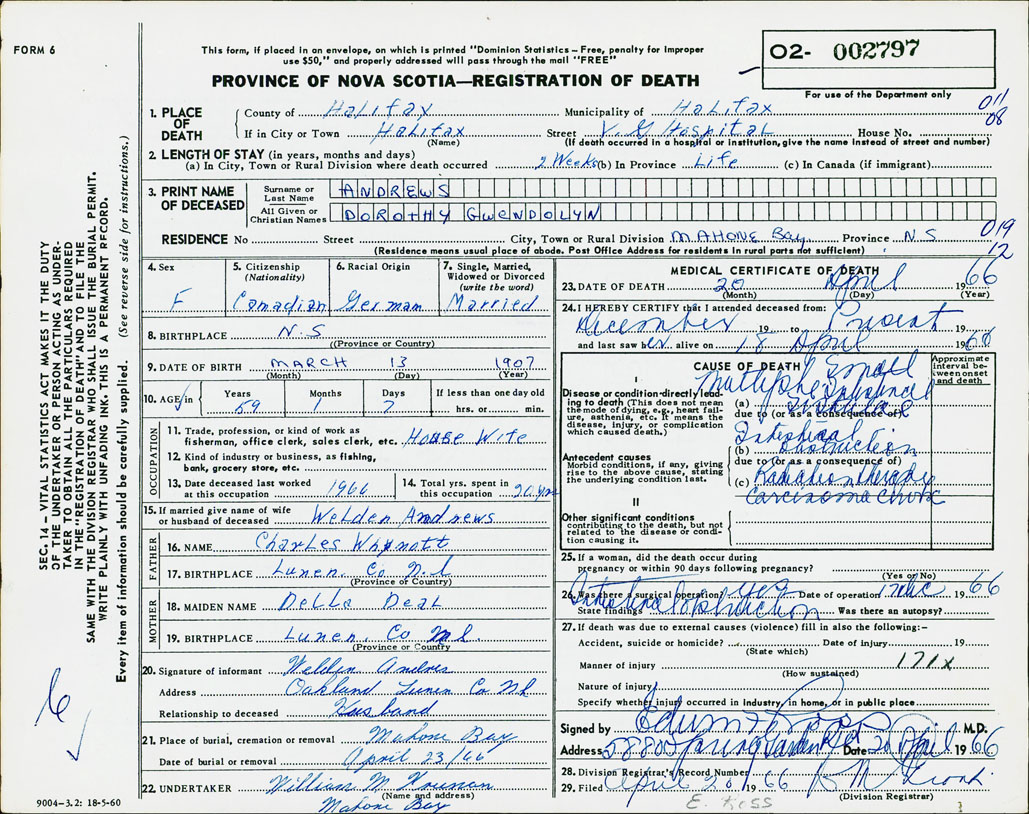 FORM 6
This form, if placed in an envelope, on which is printed "Dominion Statistics – Free, penalty for improper
use $50," and properly addressed will pass through the mail "FREE"
PROVINCE OF NOVA SCOTIA—REGISTRATION OF DEATH
O2- 002797
For use of the Department only
011
08
1. PLACE OF DEATH
County of Halifax Municipality of Halifax
If in City or Town Halifax Street V. G Hospital House No.
(Name) (If death occurred in a hospital or institution, give the name instead of street and number)
2. LENGTH OF STAY (in years, months and days)
(a) In City, Town or Rural Division where death occurred 2 Weeks (b) In Province Life (c) In Canada (if immigrant)
3. PRINT NAME OF DECEASED
Surname or Last Name ANDREWS
All Given or Christian Names DOROTHY GWENDOLYN
RESIDENCE No Street City, Town or Rural Division MAHONE BAY Province N S
(Residence means usual place of abode. Post Office Address for residents in rural parts not sufficient)
019
12
4. Sex F
5. Citizenship (Nationality) Canadian
6. Racial Origin German
7. Single, Married, Widowed or Divorced (write the word) Married
8. BIRTHPLACE N.S
(Province or Country)
9. DATE OF BIRTH MARCH 13 1907
(Month) (Day) (Year)
10. AGE in Years 59 Months 1 Days 7 If less than one day old hrs. or min.
OCCUPATION
11. Trade, profession, or kind of work as
fisherman, office clerk, sales clerk, etc. House Wife
12. Kind of industry or business, as fishing,
bank, grocery store, etc.
13. Date deceased last worked at this occupation 1966
14. Total yrs. spent in this occupation 20 yrs
15. If married give name of wife
or husband of deceased Welden Andrews
FATHER
16. NAME Charles Whynott
17. BIRTHPLACE Lunen. Co N.S
(Province or Country)
MOTHER
18. MAIDEN NAME Della Deal
19. BIRTHPLACE Lunen. Co N.S.
(Province or Country)
20. Signature of informant Welden Andres
Address Oakland Lunen Co NS
Relationship to deceased Husband
21. Place of burial, cremation or removal Mahone Bay
Date of burial or removal April 23/66
22. UNDERTAKER William M
(Name and address)
Mahone Bay
9004–3.2: 18-5-60
MEDICAL CERTIFICATE OF DEATH
23. DATE OF DEATH 20 April 1966
(Month) (Day) (Year)
24. I HEREBY CERTIFY that I attended deceased from:
December 19 to Present 19
and last saw her alive on 18 April 1966
CAUSE OF DEATH
Approximate interval between onset and death
I
Disease or condition directly leading to death (This does not mean the mode of dying, e.g., heart failure, asthenia, etc. It means the disease, injury, or complication which caused death.)
(a) Multiple Small Intestinal Fistulae
due to (or as a consequence of)
Antecedent causes
Morbid conditions, if any, giving rise to the above cause, stating the underlying condition last.
(b) Intestinal Obstruction
due to (or as a consequence of)
(c) Radiation therapy
Carcinoma Cervix
II
Other significant conditions contributing to the death, but not related to the disease or condition causing it.
25. If a woman, did the death occur during
pregnancy or within 90 days following pregnancy?
(Yes or No)
26. Was there a surgical operation? yes Date of operation 1966
State findings Intestinal obstruction Was there an autopsy?
27. If death was due to external causes (violence) fill in also the following:—
Accident, suicide or homicide? Date of injury 19
(State which)
Manner of injury 171X
(How sustained)
Nature of injury
Specify whether injury occurred in industry, in home, or in public place
Signed by Edwin F Ross M.D.
Address 5880 Spring Garden Rd Date 20 April 1966
28. Division Registrar's Record Number
29. Filed April 20 1966
(Division Registrar)
E. Ross
SEC. 14 – VITAL STATISTICS ACT MAKES IT THE DUTY
OF THE UNDERTAKER OR PERSON ACTING AS UNDER-
TAKER TO OBTAIN ALL THE PARTICULARS REQUIRED
IN THE "REGISTRATION OF DEATH" AND TO FILE THE
SAME WITH THE DIVISION REGISTRAR WHO SHALL ISSUE THE BURIAL PERMIT.
WRITE PLAINLY WITH UNFADING INK. THIS IS A PERMANENT RECORD.
Every item of information should be carefully supplied. (See reverse side for instructions.)
6